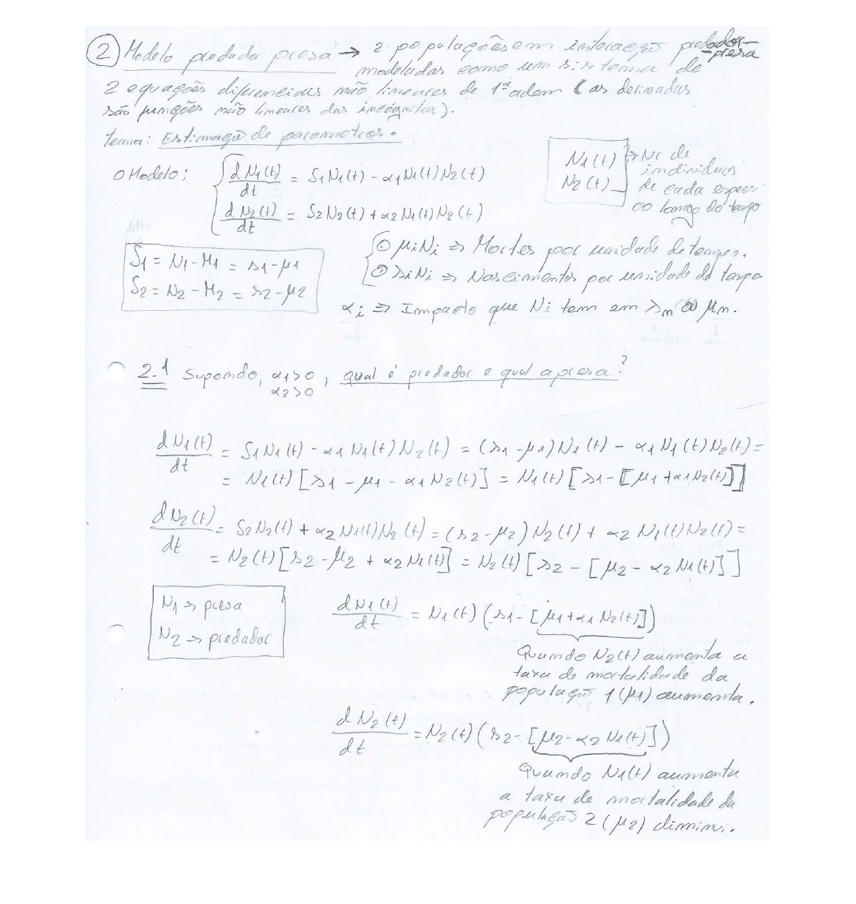 ② Modelo predador presa → 2 populações em interação predador-presa
modeladas como um sistema de
2 equações diferenciais não lineares de 1ª adem (as derivadas
são funções não lineares das incógnitas).
tema: Estimação de parametros.
O Modelo: { dN1(t)/dt = S1N1(t) - α1N1(t)N2(t)
dN2(t)/dt = S2N2(t) + α2N1(t)N2(t)
N1(t)
N2(t)
→ Nr de
individuos
de cada especie
ao longo do tempo
S1 = N1 - M1 = λ1 - μ1
S2 = N2 - M2 = λ2 - μ2
{ ⊙ μiNi ⇒ Mortes por unidade de tempo.
⊙ λiNi ⇒ Nascimentos por unidade de tempo
αi ⇒ Impacto que Ni tem em λm ou μm.
2.1 Supondo, α1>0
α2>0 , qual é predador e qual a presa?
dN1(t)/dt = S1N1(t) - α1N1(t)N2(t) = (λ1 - μ1)N1(t) - α1N1(t)N2(t) =
= N1(t)[λ1 - μ1 - α1N2(t)] = N1(t)[λ1 - [μ1 + α1N2(t)]]
dN2(t)/dt = S2N2(t) + α2N1(t)N2(t) = (λ2 - μ2)N2(t) + α2N1(t)N2(t) =
= N2(t)[λ2 - μ2 + α2N1(t)] = N2(t)[λ2 - [μ2 - α2N1(t)]]
N1 → presa
N2 → predador
dN1(t)/dt = N1(t)(λ1 - [μ1 + α1N2(t)])
Quando N2(t) aumenta a
taxa de mortalidade da
população 1 (μ1) aumenta.
dN2(t)/dt = N2(t)(λ2 - [μ2 - α2N1(t)])
Quando N1(t) aumenta
a taxa de mortalidade da
população 2 (μ2) diminui.